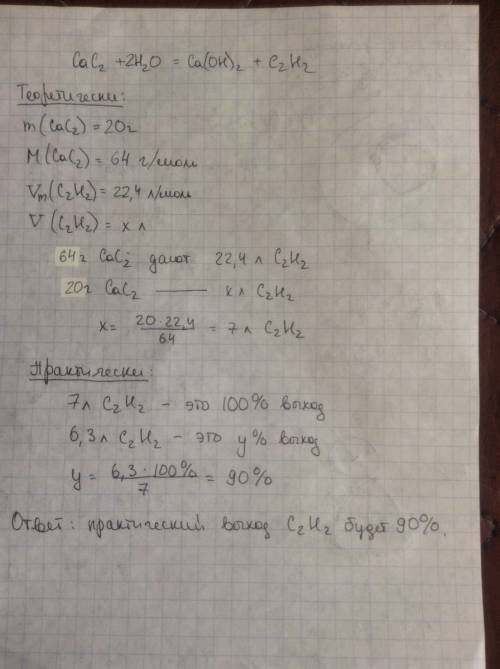 CaC₂ + 2H₂O = Ca(OH)₂ + C₂H₂
Теоретически:
m(CaC₂) = 20г
M(CaC₂) = 64 г/моль
Vm(C₂H₂) = 22,4 л/моль
V(C₂H₂) = x л
64г CaC₂ дают 22,4 л C₂H₂
20г CaC₂ —— x л C₂H₂
x = 20·22,4/64 = 7 л C₂H₂
Практически:
7л C₂H₂ – это 100% выход
6,3л C₂H₂ – это y% выход
y = 6,3·100%/7 = 90%
Ответ: практический выход C₂H₂ будет 90%.